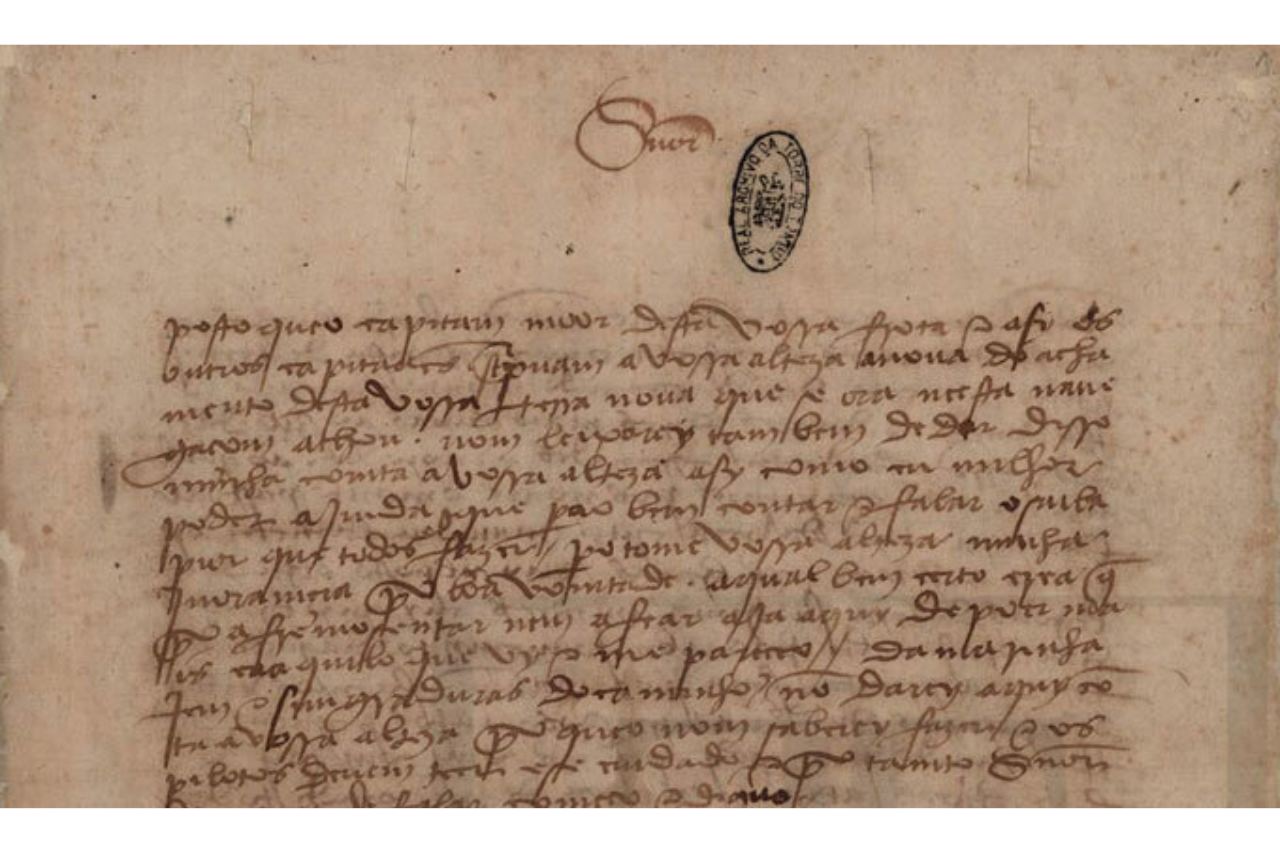 Snor
REAL ARCHIVO DA TORRE DO TOMBO
posto queo capitam moor desta vossa frota e asy os
outros capitaães screpuam a vossa alteza a noua do acha
mento desta vossa terra noua que se ora neesta naue
gaçom achou . nom leixarey tambem de dar disso
minha comta a vossa alteza asy como eu milhor
poder ajmda que pera o bem contar e falar o saiba
pior que todos fazer / pero tome vossa alteza minha
jnoramçia por boa vomtade . aqual bem certo crea q̃
por afremosentar nem afear aja aquy de poer ma
is caaquilo que vy e me pareceo / da marinha
jem e simgraduras do caminho / nõ darey aquy cõ
ta a vossa alteza por queo nom saberey fazer e os
pilotos deuem teer ese cuidado e por tamto Snor
falar começo e diguo